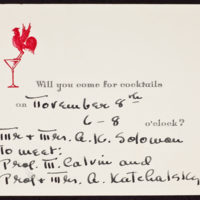 Will you come for cocktails
on November 8th
6-8 o'clock?
Mr + Mrs. A. K. Solomon
To meet:
Prof. M. Calvin and
Prof + Mrs. A. Katchalsky